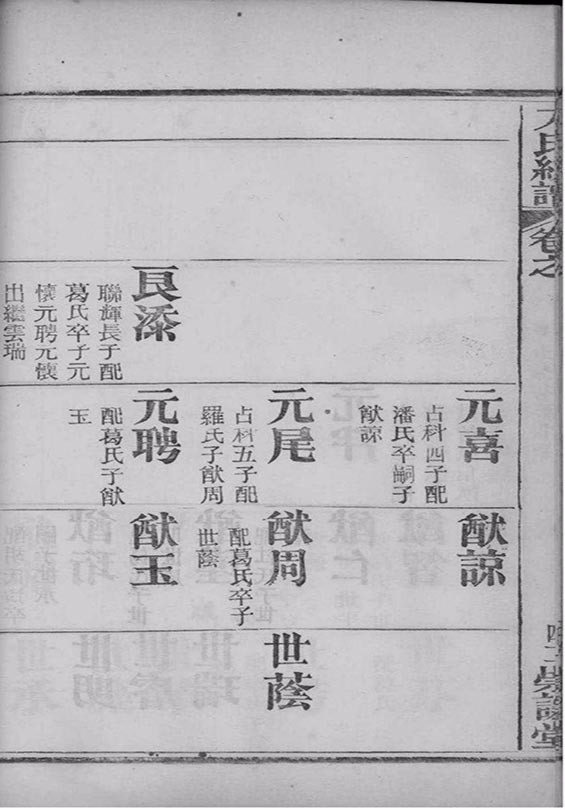 氏 譜 卷之
崇 堂
元喜
占科四子配
潘氏卒嗣子
猷諒
元尾
占科五子配
羅氏子猷周
良添
聯輝長子配
葛氏卒子元
懷元聘元懷
出繼雲瑞
元聘
配葛氏子猷
玉
猷諒
猷周
配葛氏卒子
世蔭
猷玉
世蔭